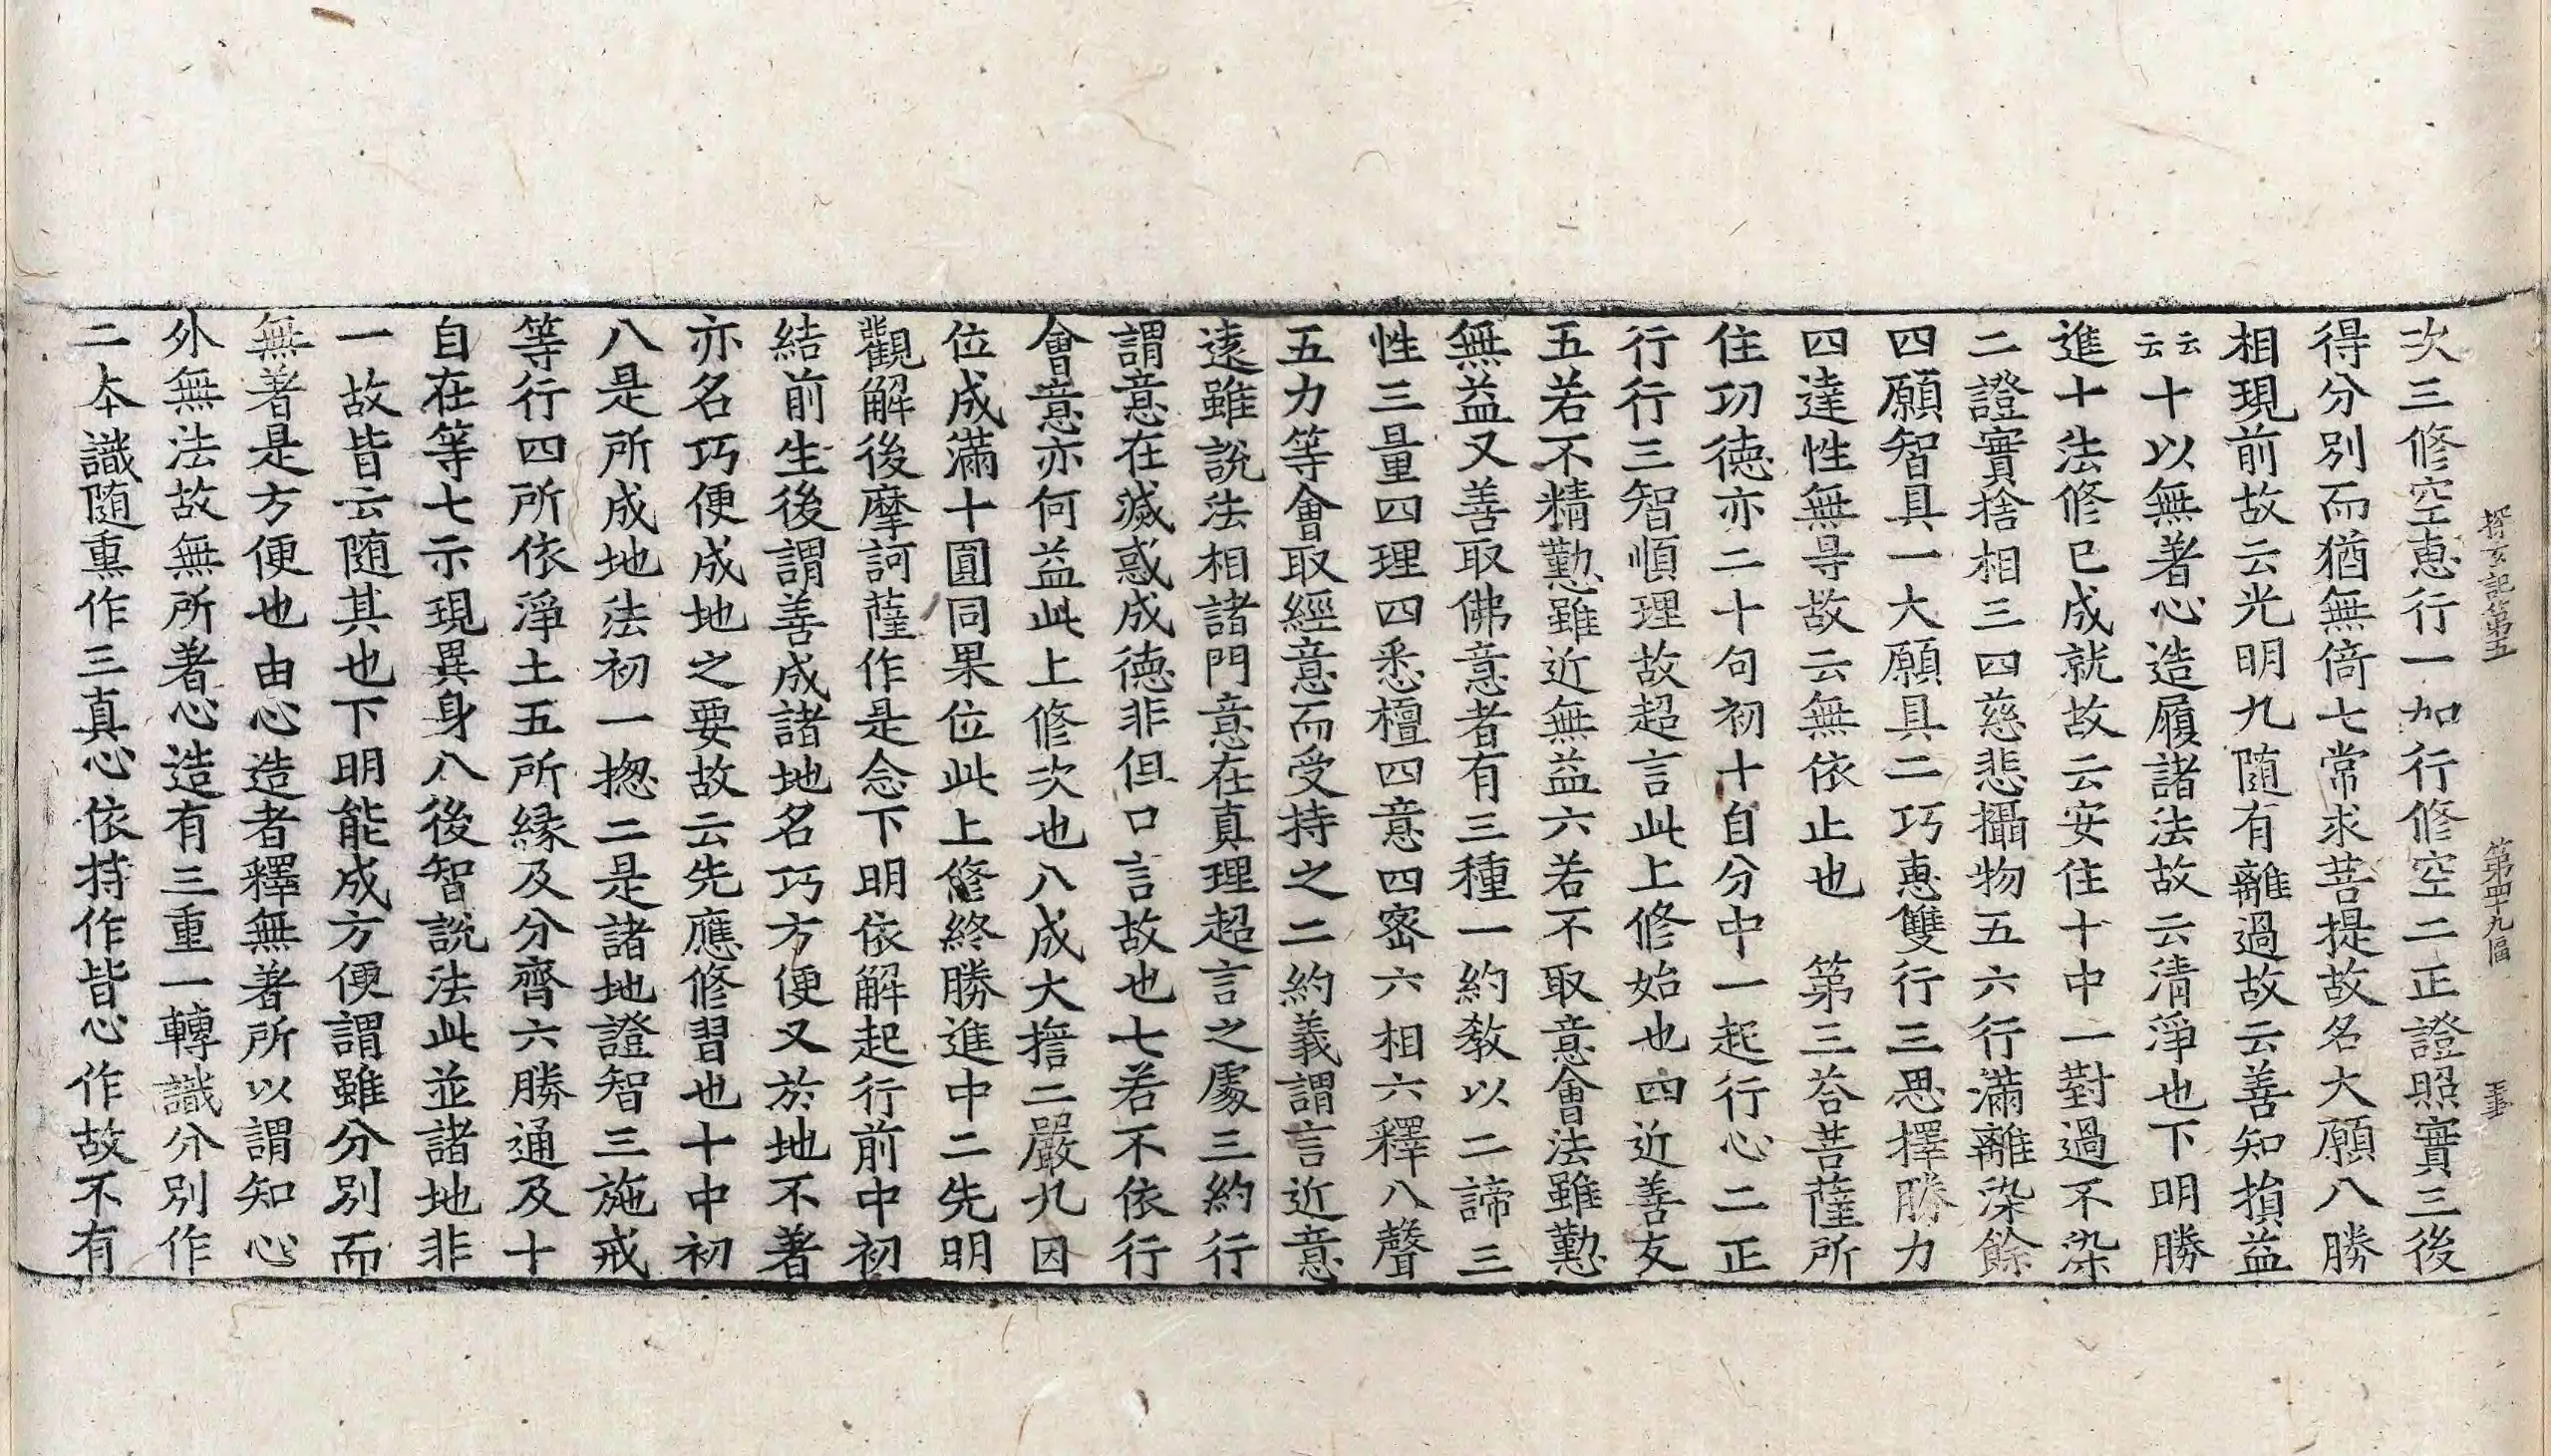 探玄記第五 第四十九張 玉
次三修空恵行一如行修空二正證照實三後
得分別而猶無倚七常求菩提故名大願八勝
相現前故云光明九随有離過故云善知損益
云云十以無著心造履諸法故云清淨也下明勝
進十法修已成就故云安住十中一對過不染
二證實捨相三四慈悲攝物五六行滿離染餘
四願智具一大願具二巧恵雙行三思擇勝力
四達性無㝵故云無依止也 第三荅菩薩所
住功德亦二十句初十自分中一起行心二正
行行三智順理故超言此上修始也四近善友
五若不精懃雖近無益六若不取意會法雖懃
無益又善取佛意者有三種一約教以二諦三
性三量四理四悉檀四意四密六相六釋八聲
五力等會取經意而受持之二約義謂言近意
遠雖說法相諸門意在真理超言之處三約行
謂意在滅惑成德非但口言故也七若不依行
會意亦何益此上修次也八成大擔二嚴九因
位成滿十圓同果位此上修終勝進中二先明
觀解後摩訶薩作是念下明依解起行前中初
結前生後謂善成諸地名巧方便又於地不著
亦名巧便成地之要故云先應修習也十中初
八是所成地法初一揔二是諸地證智三施戒
等行四所依淨土五所縁及分齊六勝通及十
自在等七示現異身八後智說法此並諸地非
一故皆云随其也下明能成方便謂雖分別而
無著是方便也由心造者釋無著所以謂知心
外無法故無所著心造有三重一轉識分別作
二本識随熏作三真心依持作皆心作故不有